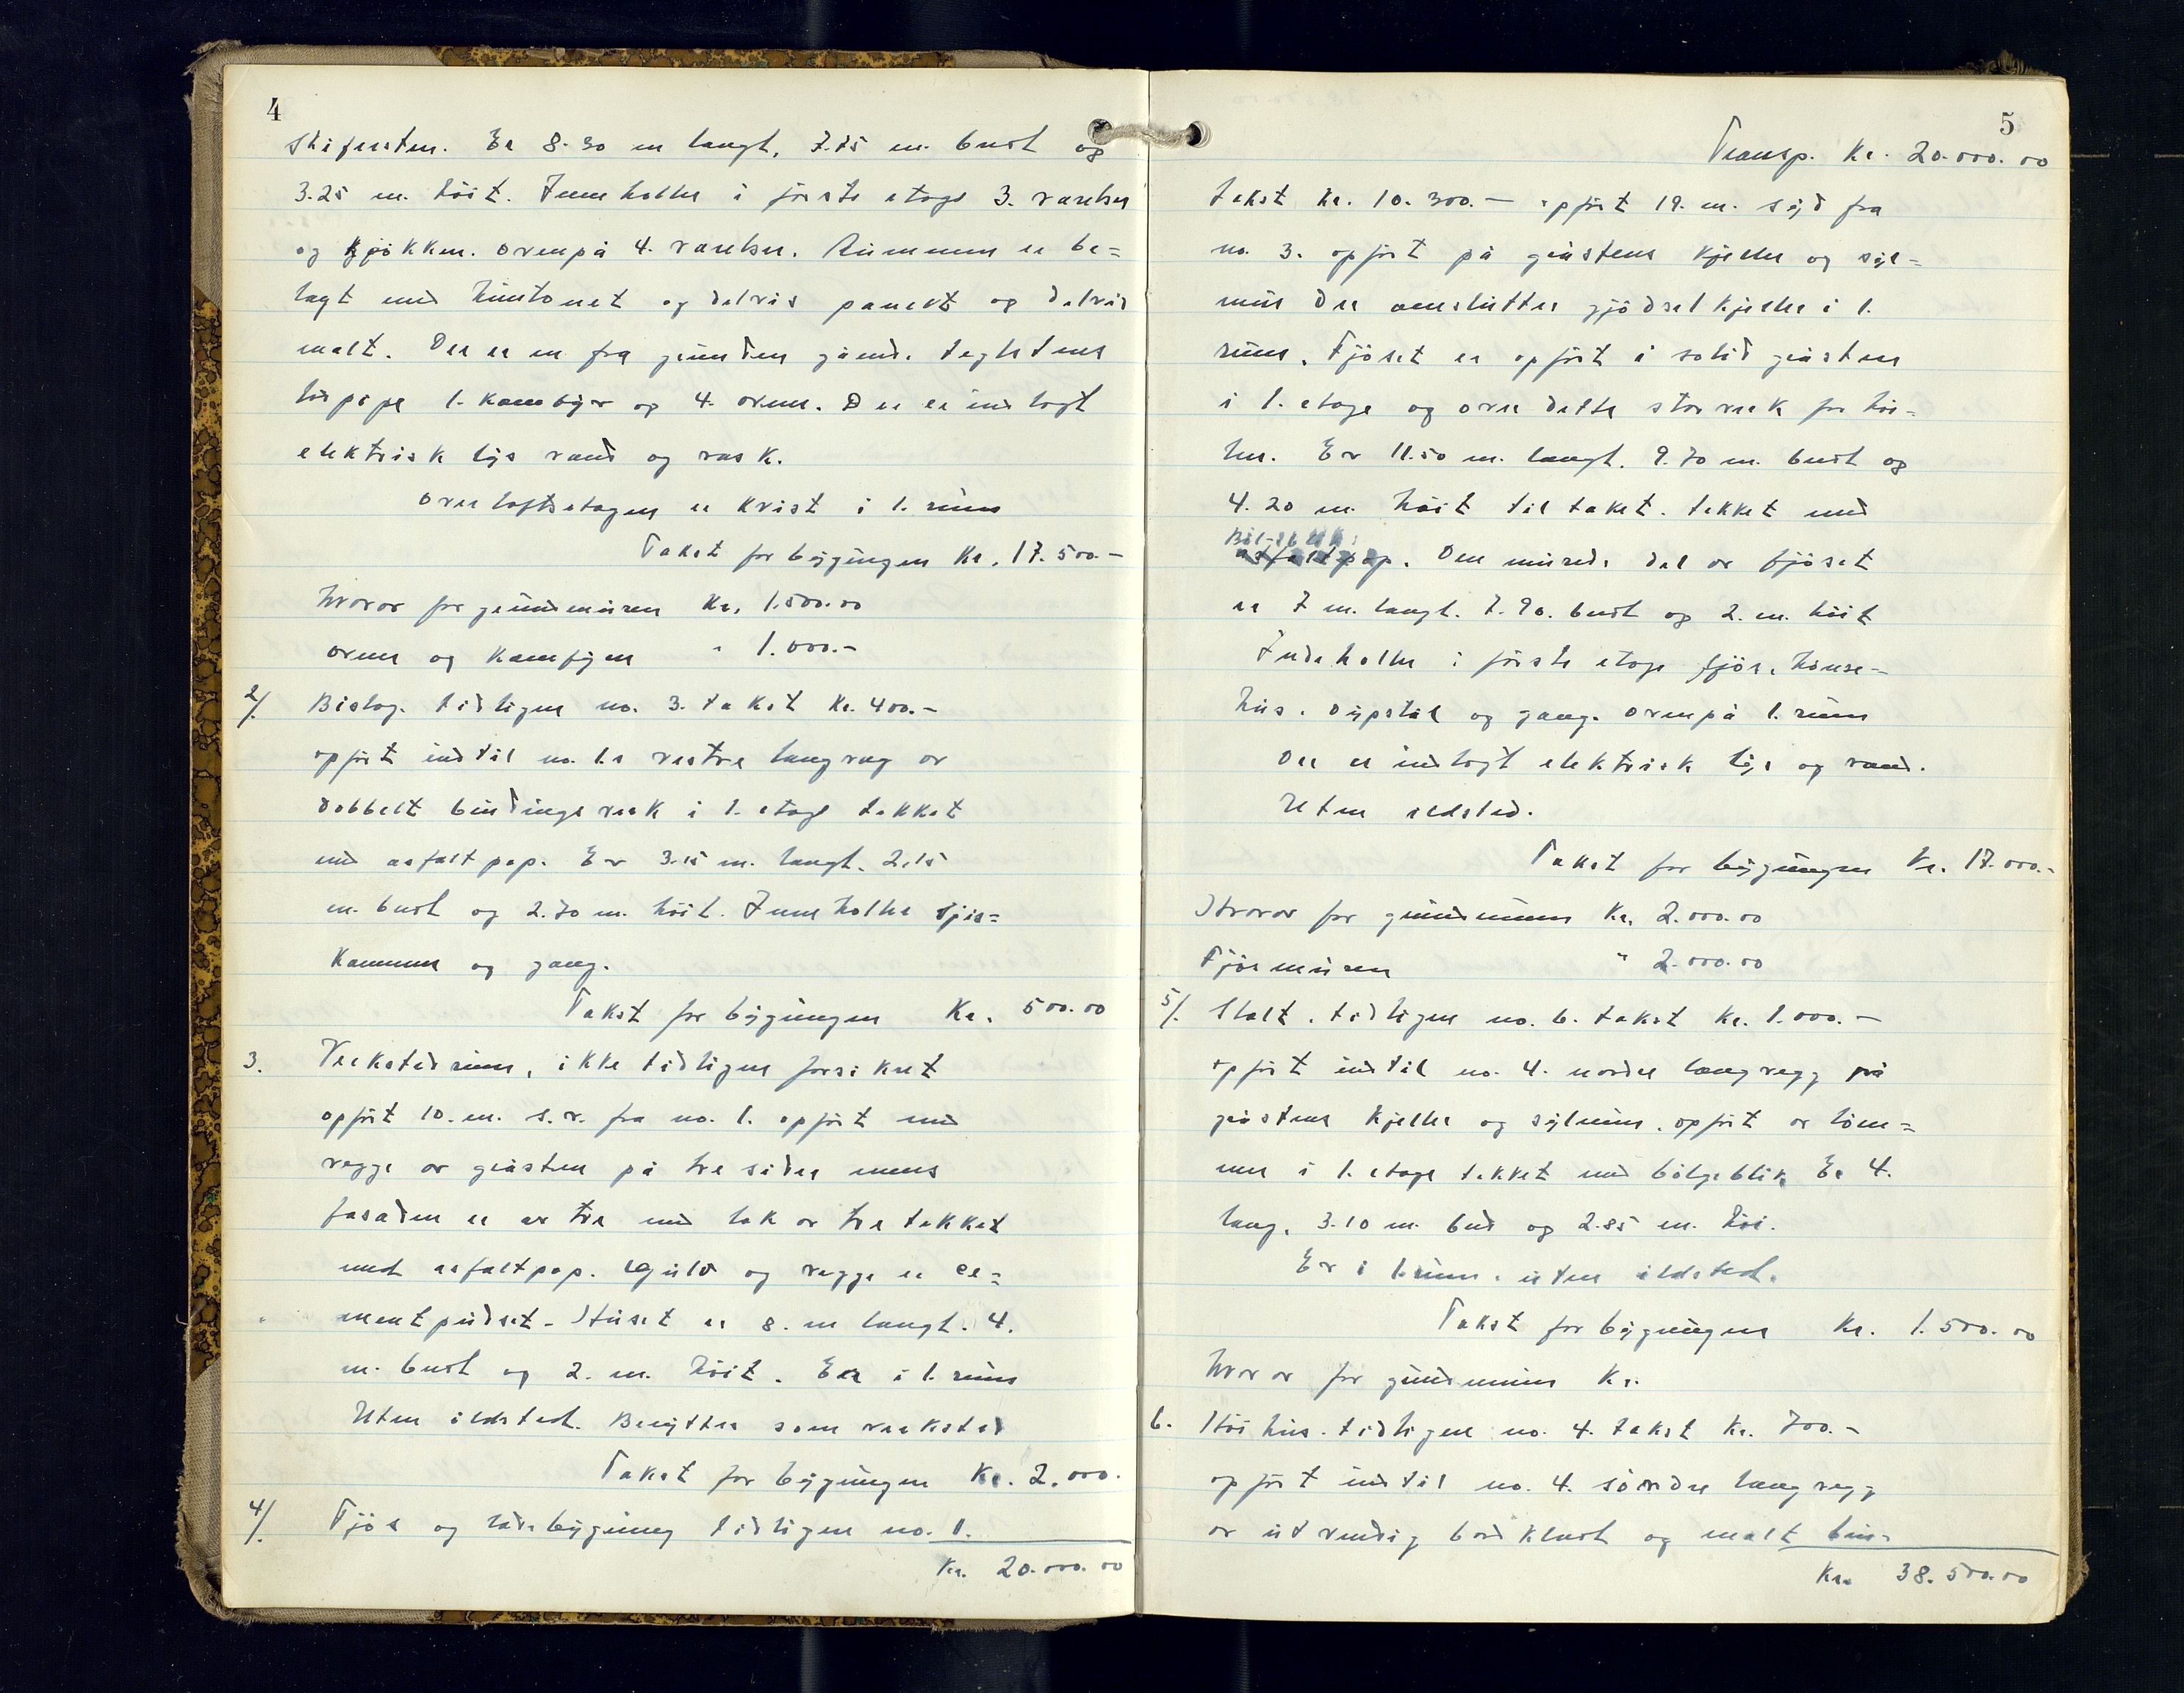 4
skifersten. Er 8.30 m langt, 7.75 m. bredt og
3.25 m. höit. Inneholder i förste etage 3. værelser
og kjökken. ovenpå 4. værelser. Rummene er be=
lagt med huntonet og delvis panelt og delvis
malt. Der er en fra grunden gående teglstens
1. komfyr og 4. ovner. Der er indlagt
elektrisk lys vand og vask.
over loftsetagen er kvist i 1. rum
Takst for bygingen Kr. 17.500.-
hvorav for grundmuren Kr. 1.500.00
ovner og Komfyren " 1.000.-
2/. Bislag. tidligere no. 3. takst Kr. 400.-
opfört indtil no. 1.s vestre langveg av
dobbelt bindingsverk i 1. etage tekket
med asfaltpap. Er 3.15 m. langt. 2.15
m. bredt og 2.70 m. höit. Inneholder spis=
kammer og gang.
Takst for bygingen Kr. 500.00
3. Verkstedrum, ikke tidligere forsikret
opfört 10. m. s.v. fra no. 1. opfört med
vegge av gråsten på tre sider mens
fasaden er av tre med tak av tre tekket
med asfaltpap. Gulv og vegge er ce=
mentpudset. Huset er 8. m langt. 4.
m. bredt og 2. m. höit. Er i 1. rum
Uten ildsted. Benyttes som verksted
Takst for bygingen Kr. 2.000.
4/. Fjös og ladebyguing tidligere no. 1.
Kr. 20.000.00
5
Transp. Kr. 20.000.00
takst Kr. 10.300.- opfört 19. m. syd fra
no. 3. opfört på gråstens kjeller og syl=
mur der omslutter gjödselkjeller i 1.
rum. Fjöset er opfört i solid gråsten
i 1. etage og over dette stavverk for höi=
Er 11.50 m. langt. 9.70 m. bredt og
4.20 m. höit til taket. tekket med
Böl-eblikk
asfaltpap. Den murede del av fjöset
er 7 m. langt. 7.90. bredt og 2. m. höit
Indeholder i förste etage fjös, hönse-
hus. dypstal og gang. ovenpå 1. rum
Der er indlagt elektrisk lys og vand.
Uten ildsted.
Takst for bygingen Kr. 17.000.-
Hvorav for grundmuren Kr. 2.000.00
Fjösmuren " 2.000.00
5/. Stall. tidligere no. 6. takst Kr. 1.000.-
opfört indtil no. 4. nordre langvegg på
gråstens kjeller og sylmur. opfört av töm=
mer i 1. etage tekket med bölgeblik Er 4.
lang, 3.10 m. bred og 2.85 m. höi.
Er i 1. rum. uten ildsted.
Takst for bygingen Kr. 1.500.00
hvorav for grundmuren Kr.
6. Höihus. tidligere no. 4. takst Kr. 700.-
opfört indtil no. 4. söndre langvegg
av utvendig bordkledt og malt bin-
Kr. 38.500.00